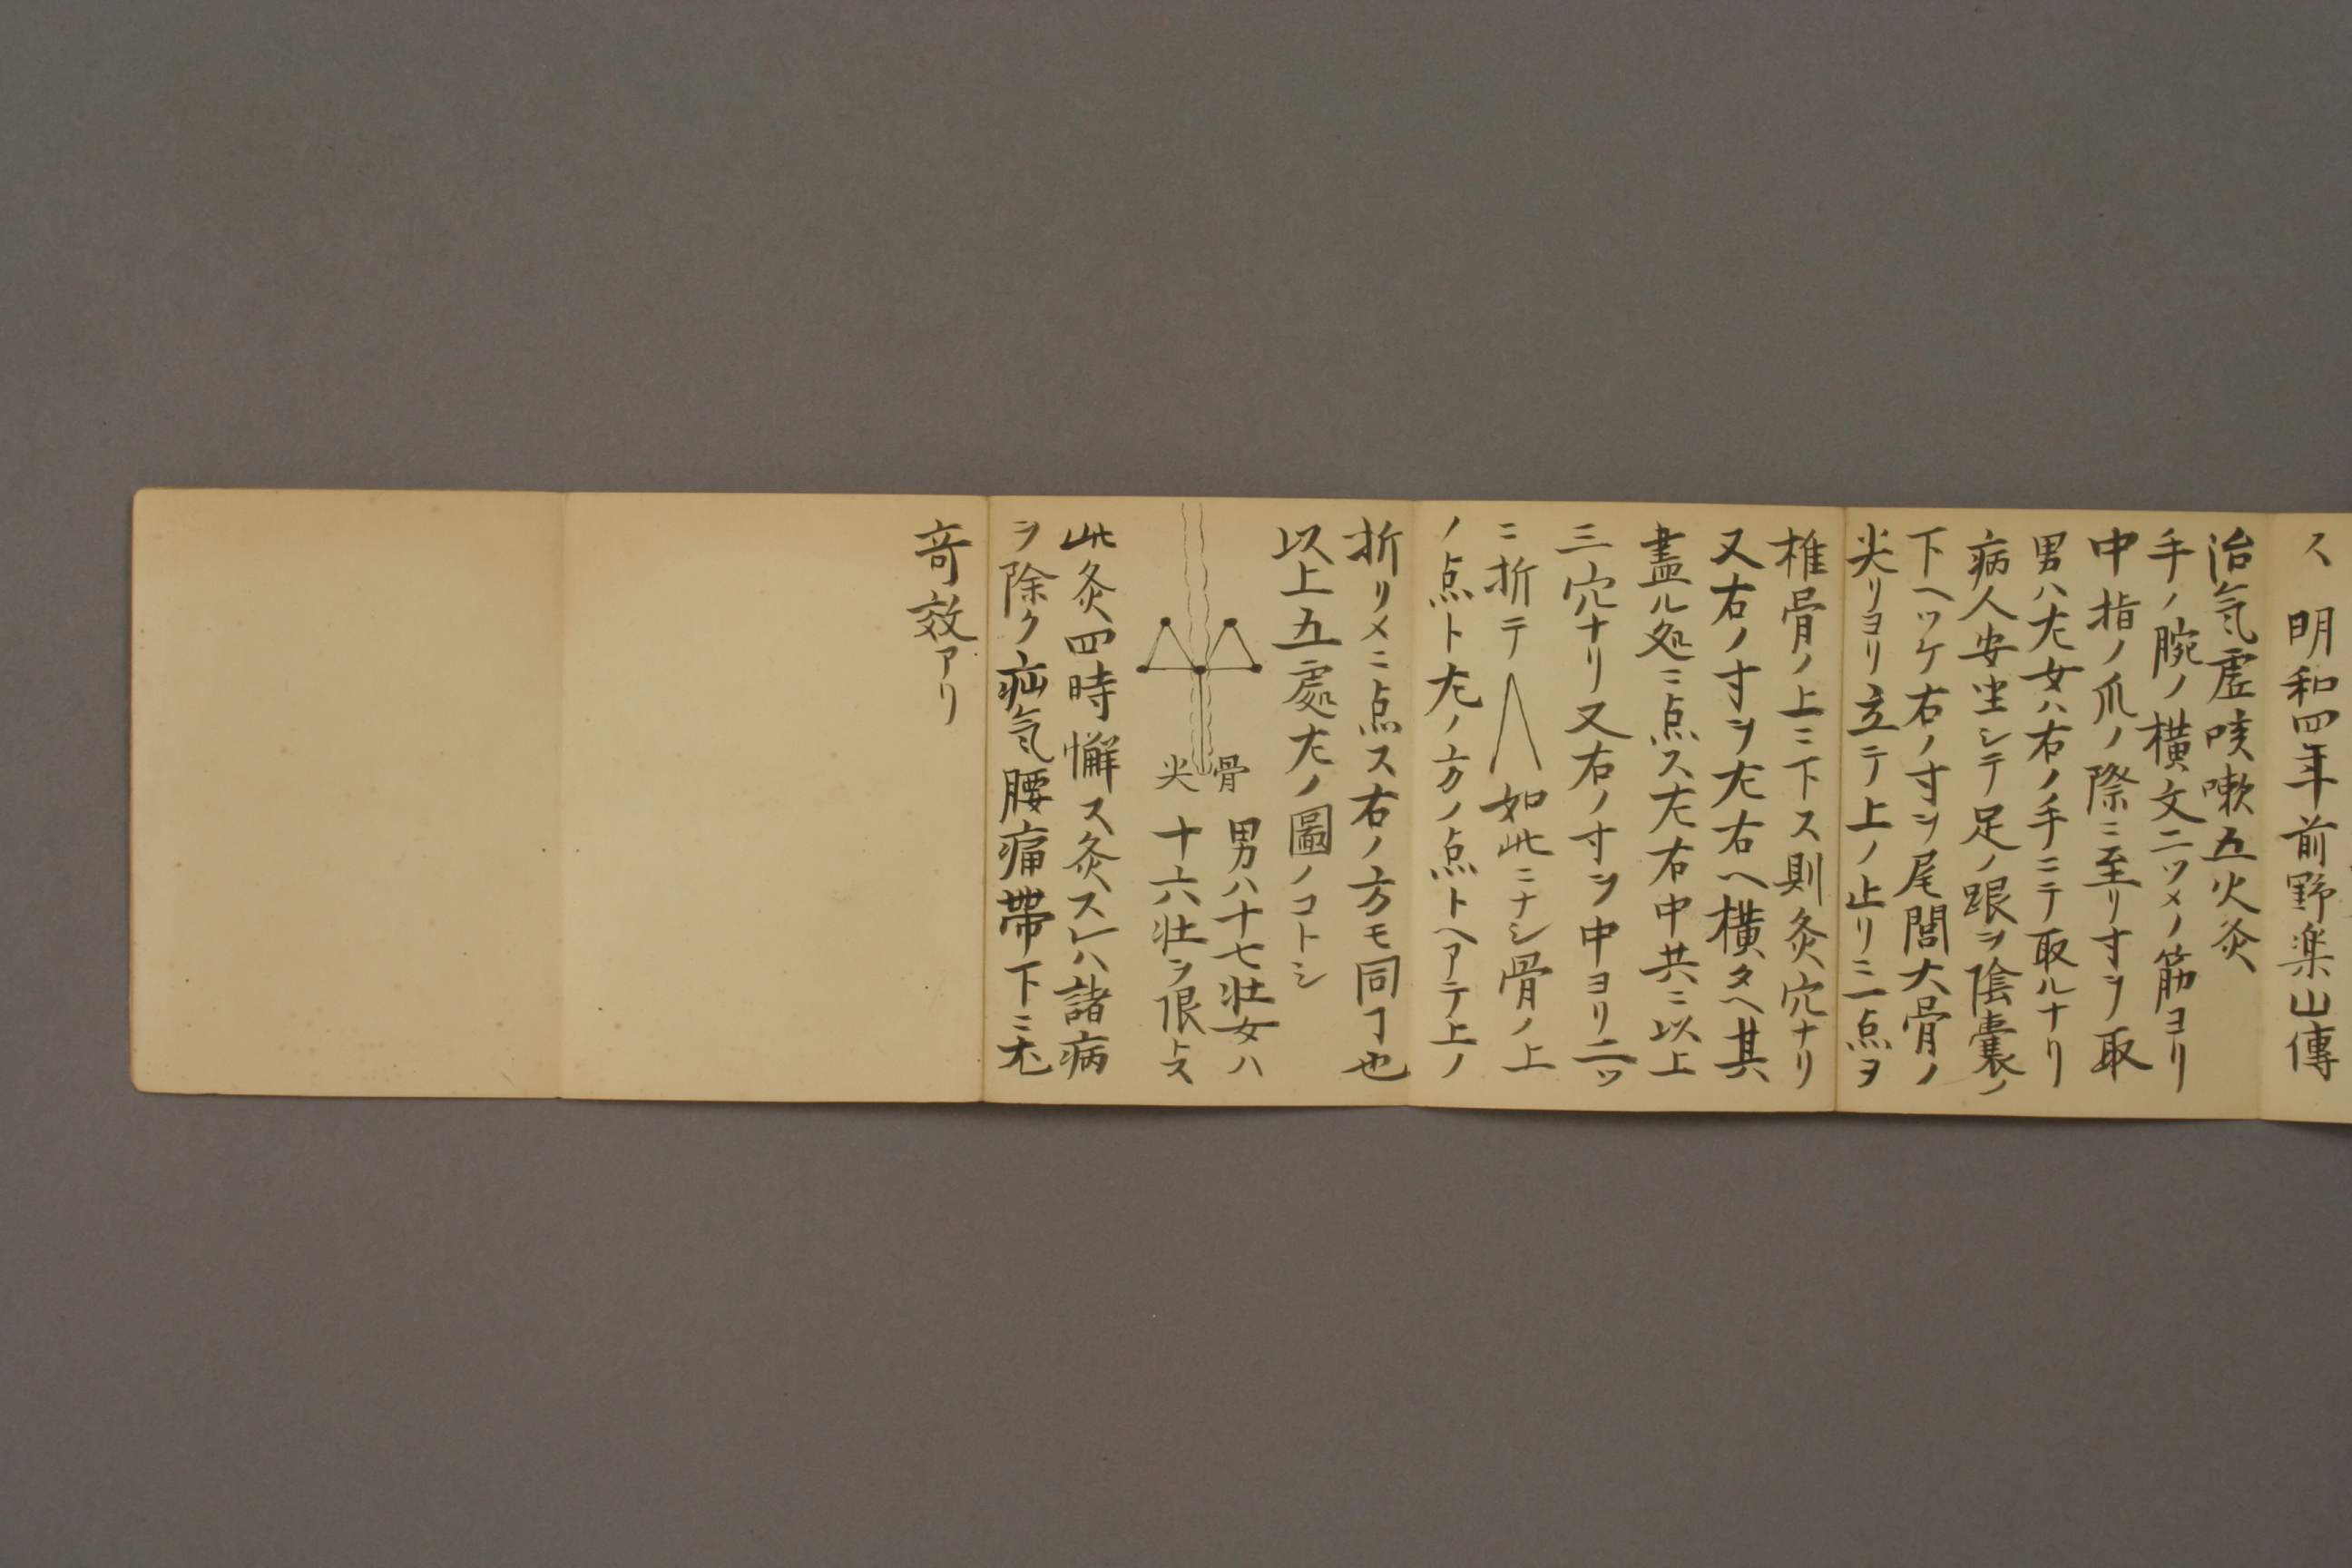 ス 明和四年前野楽山傳
治氣虚咳嗽五火灸
手ノ腕ノ横文二ツメノ筋ヨリ
中指ノ爪ノ際ニ至リ寸ヲ取
男ハ左女ハ右ノ手ニテ取ルナリ
病人安坐シテ足ノ跟ヲ陰嚢ノ
下ヘツケ右ノ寸ヲ尾閭大骨ノ
尖リヨリ立テ上ノ止リニ一点ヲ
椎骨ノ上ニ下ス則灸穴ナリ
又右ノ寸ヲ左右ヘ横タヘ其
盡ル処ニ点ス左右中共ニ以上
三穴ナリ又右ノ寸ヲ中ヨリ二ツ
ニ折テ 如此ニナシ骨ノ上
ノ点ト左ノ方ノ点トヘアテ上ノ
折リメニ点ス右ノ方モ同ヿ也
以上五處左ノ圖ノコトシ
骨
尖
男ハ十七壮女ハ
十六壮ヲ限トス
此灸四時懈ス灸スレハ諸病
ヲ除ク疝氣腰痛帶下ニ尤
竒效アリ